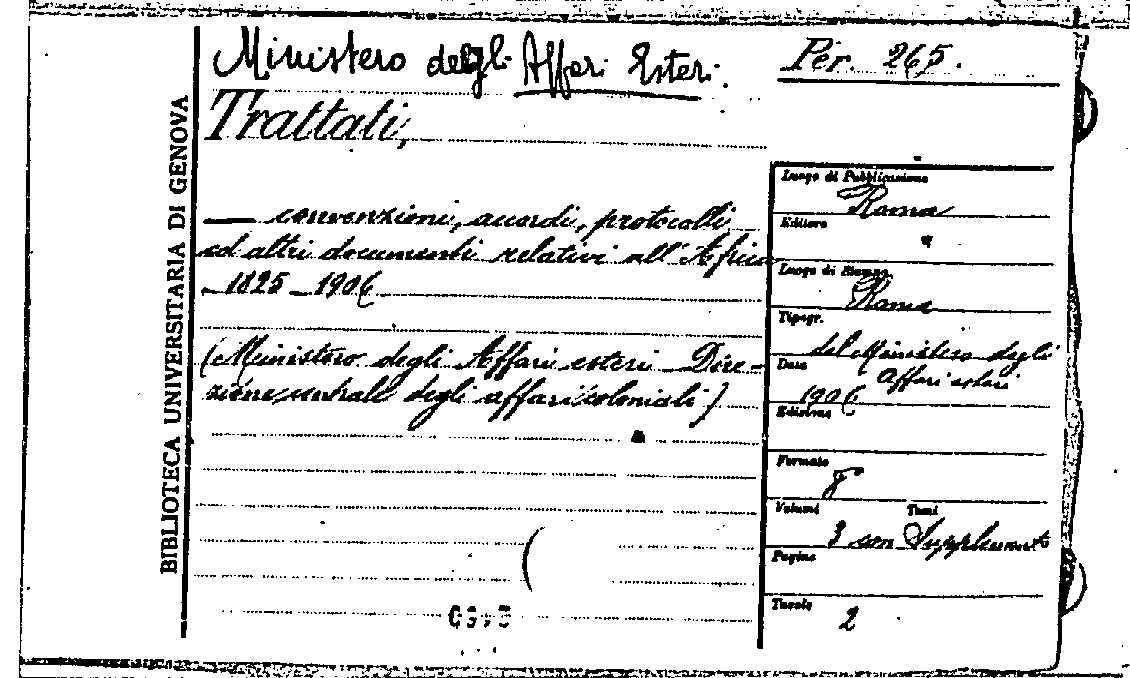 Ministero degli Affari Esteri.
Per. 265.
Trattati,
— convenzioni, accordi, protocolli
ed altri documenti relativi all'Africa
_ 1825 _ 1906
(Ministero degli Affari esteri _ Dire-
zione centrale degli affari coloniali)
BIBLIOTECA UNIVERSITARIA DI GENOVA
Luogo di Pubblicazione
Roma
Editore
Luogo di Stampa
Roma
Tipogr.
del Ministero degli
Affari esteri
Data
1906
Edizione
Formato
8°
Volumi Tomi
3 con Supplemento
Pagine
Tavole
2